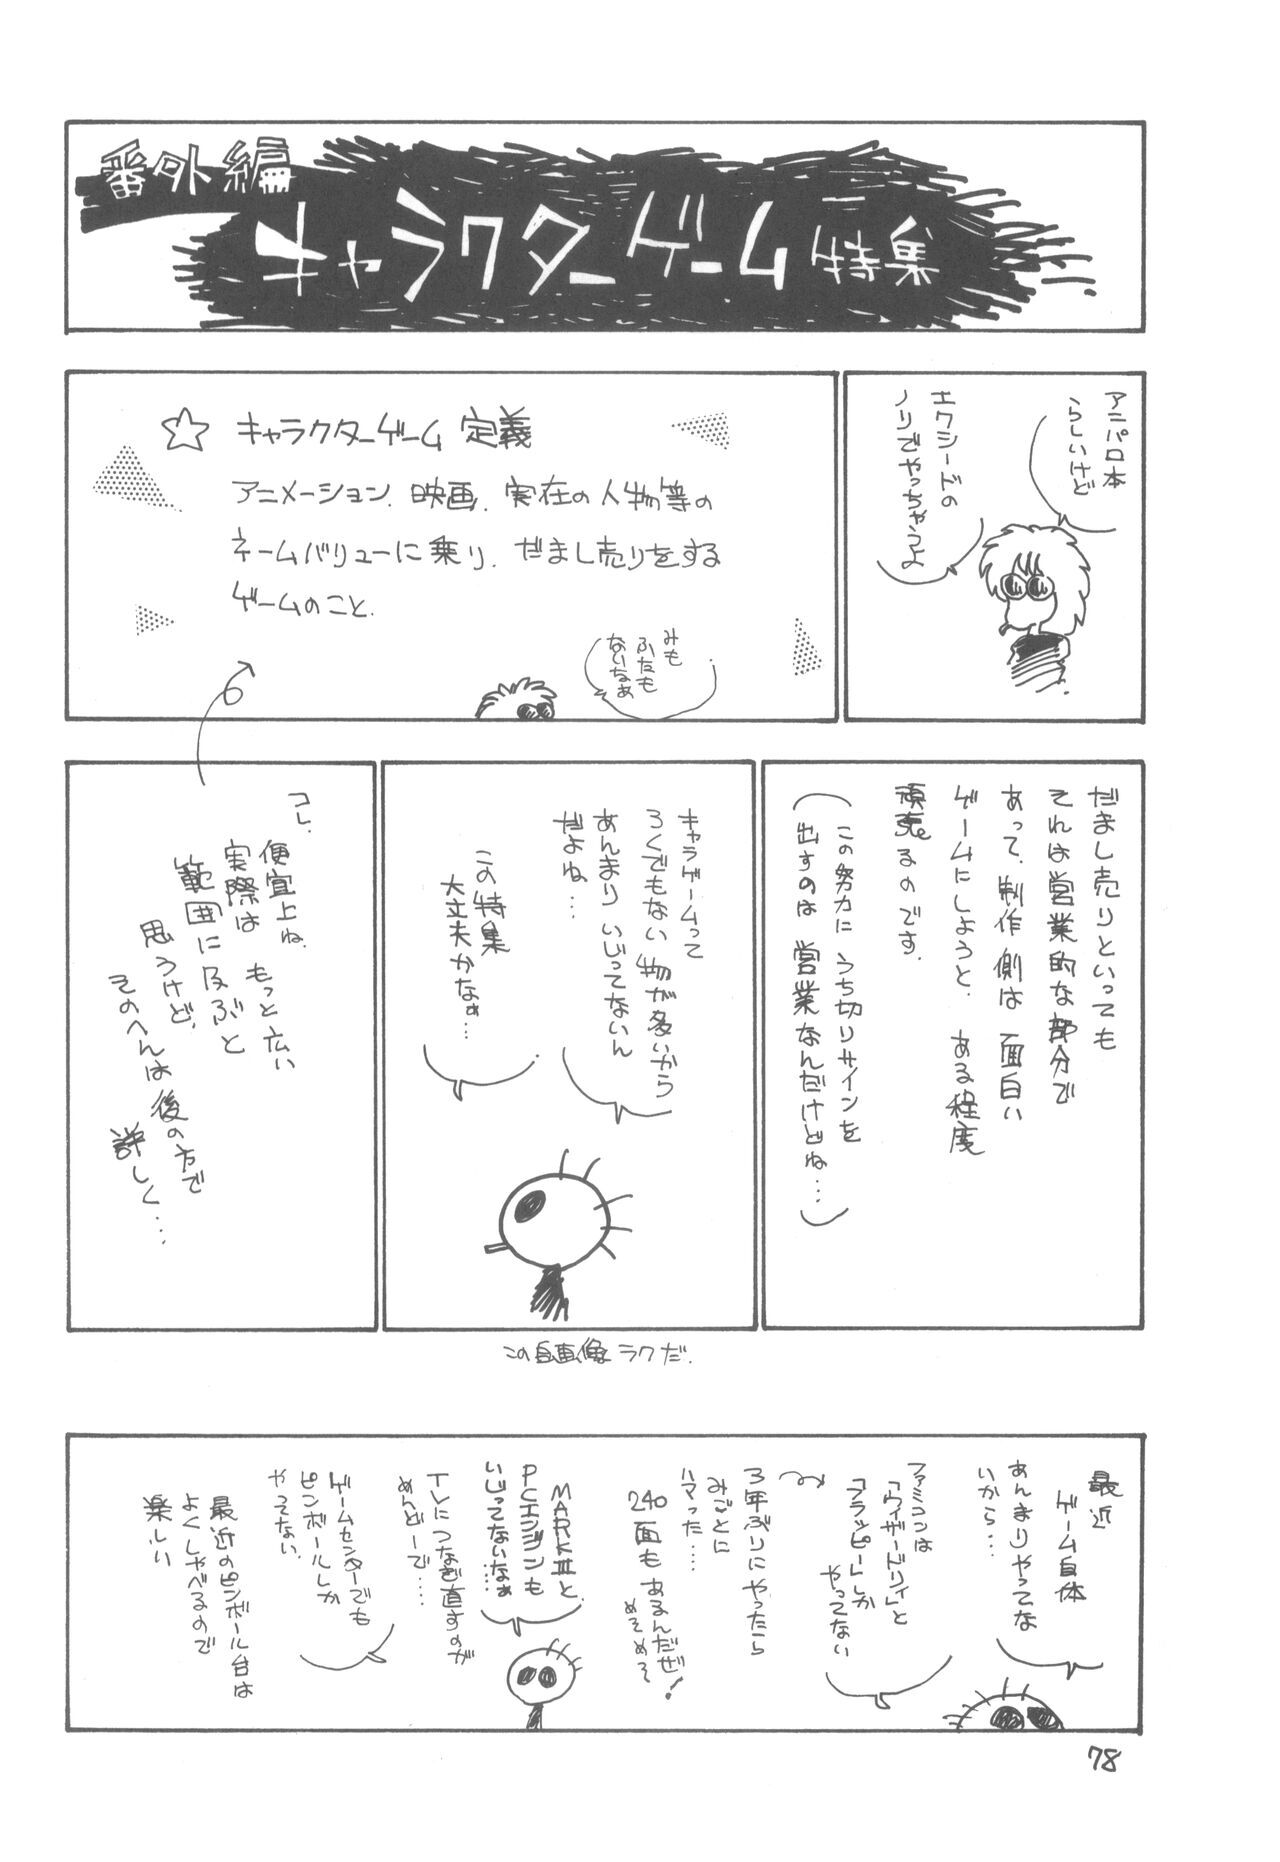 番外編
キャラクターゲーム特集
アニパロ本
らしいけど
エクシードの
ノリでやっちゃうよ
☆ キャラクターゲーム 定義
アニメーション、映画、実在の人物等の
ネームバリューに乗り、だまし売りをする
ゲームのこと。
みも
ふたも
ないなぁ
だまし売りといっても
それは営業的な部分で
あって、制作側は面白い
ゲームにしようと、ある程度
頑張るのです。
(この努力にうち切りサインを
出すのは営業なんだけどね…)
キャラゲームって
ろくでもない物が多いから
あんまりいじってないん
だよね…
この特集
大丈夫かなぁ…
コレ、
便宜上ね、
実際はもっと広い
範囲に及ぶと
思うけど、
そのへんは後の方で
詳しく…
この自画像ラクだ。
最近
ゲーム自体
あんまりやってな
いから…
ファミコンは
「ウィザードリィ」と
「フラッピー」しか
やってない
3年ぶりにやったら
みごとに
ハマった…
240面もあるんだぜ!
めそめそ
MARKⅢと
PCエンジンも
いじってないなぁ…
TVにつなぎ直すのが
めんどーで…
ゲームセンターでも
ピンボールしか
やってない、
最近のピンボール台は
よく、しゃべるので
楽しい
78